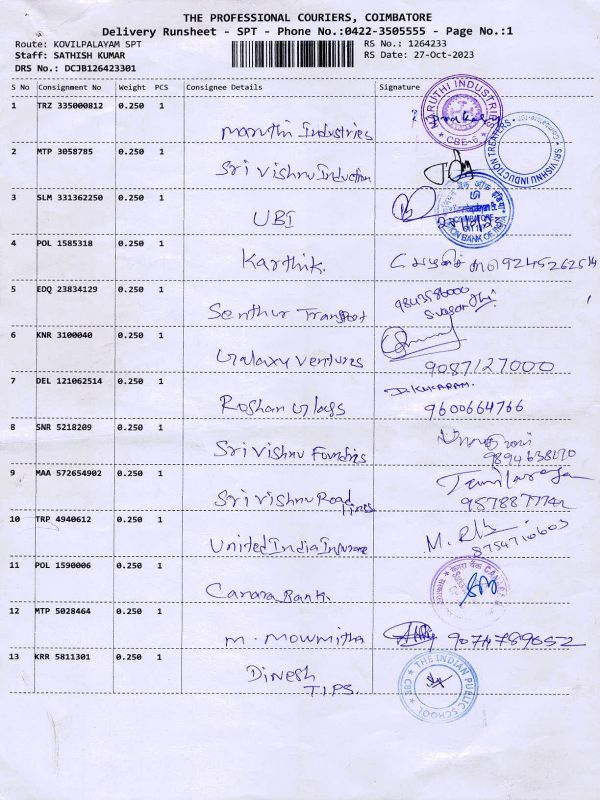 THE PROFESSIONAL COURIERS, COIMBATORE
Delivery Runsheet - SPT - Phone No.:0422-3505555 - Page No.:1
Route: KOVILPALAYAM SPT RS No.: 1264233
Staff: SATHISH KUMAR RS Date: 27-Oct-2023
DRS No.: DCJB126423301
S No Consignment No Weight PCS Consignee Details Signature
1 TRZ 335000812 0.250 1 Maruthi Industries
MARUTHI INDUSTRIES CBE-6
2 MTP 3058785 0.250 1 Sri Vishnu Induction
SRI VISHNU INDUCTION TREATERS
3 SLM 331362250 0.250 1 UBI
UNION BANK OF INDIA
4 POL 1585318 0.250 1 Karthik 9245262514
5 EDQ 23834129 0.250 1 Senthur Transport
6 KNR 3100040 0.250 1 Galaxy Ventures 9087127000
7 DEL 121062514 0.250 1 Roshan Glass 9600664766
8 SNR 5218209 0.250 1 Sri Vishnu Foundries
9 MAA 572654902 0.250 1 Sri Vishnu Road lines
10 TRP 4940612 0.250 1 United India Insurance
11 POL 1590006 0.250 1 Canara Bank
12 MTP 5028464 0.250 1 M. Mowmitha
13 KRR 5811301 0.250 1 Dinesh
T.I.P.S.
THE INDIAN PUBLIC SCHOOL CBE